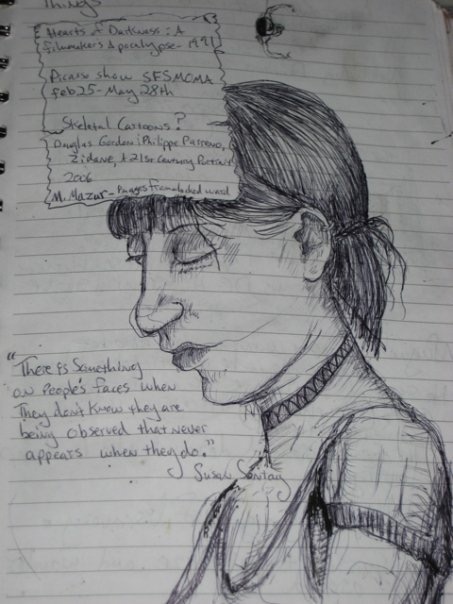 Things
Hearts of Darkness: A
filmmakers Apocalypse - 1991
Picasso show SFSMOMA
feb 25 - May 28th
Skeletal Cartoons?
Douglas Gordon i Philippe Parreno,
Zidane, A 21st Century Portrait
2006
M. Mazur - Images from a locked ward
"There is Something
on People's faces when
They don't Know they are
being observed that never
appears when they do."
Susan Sontag